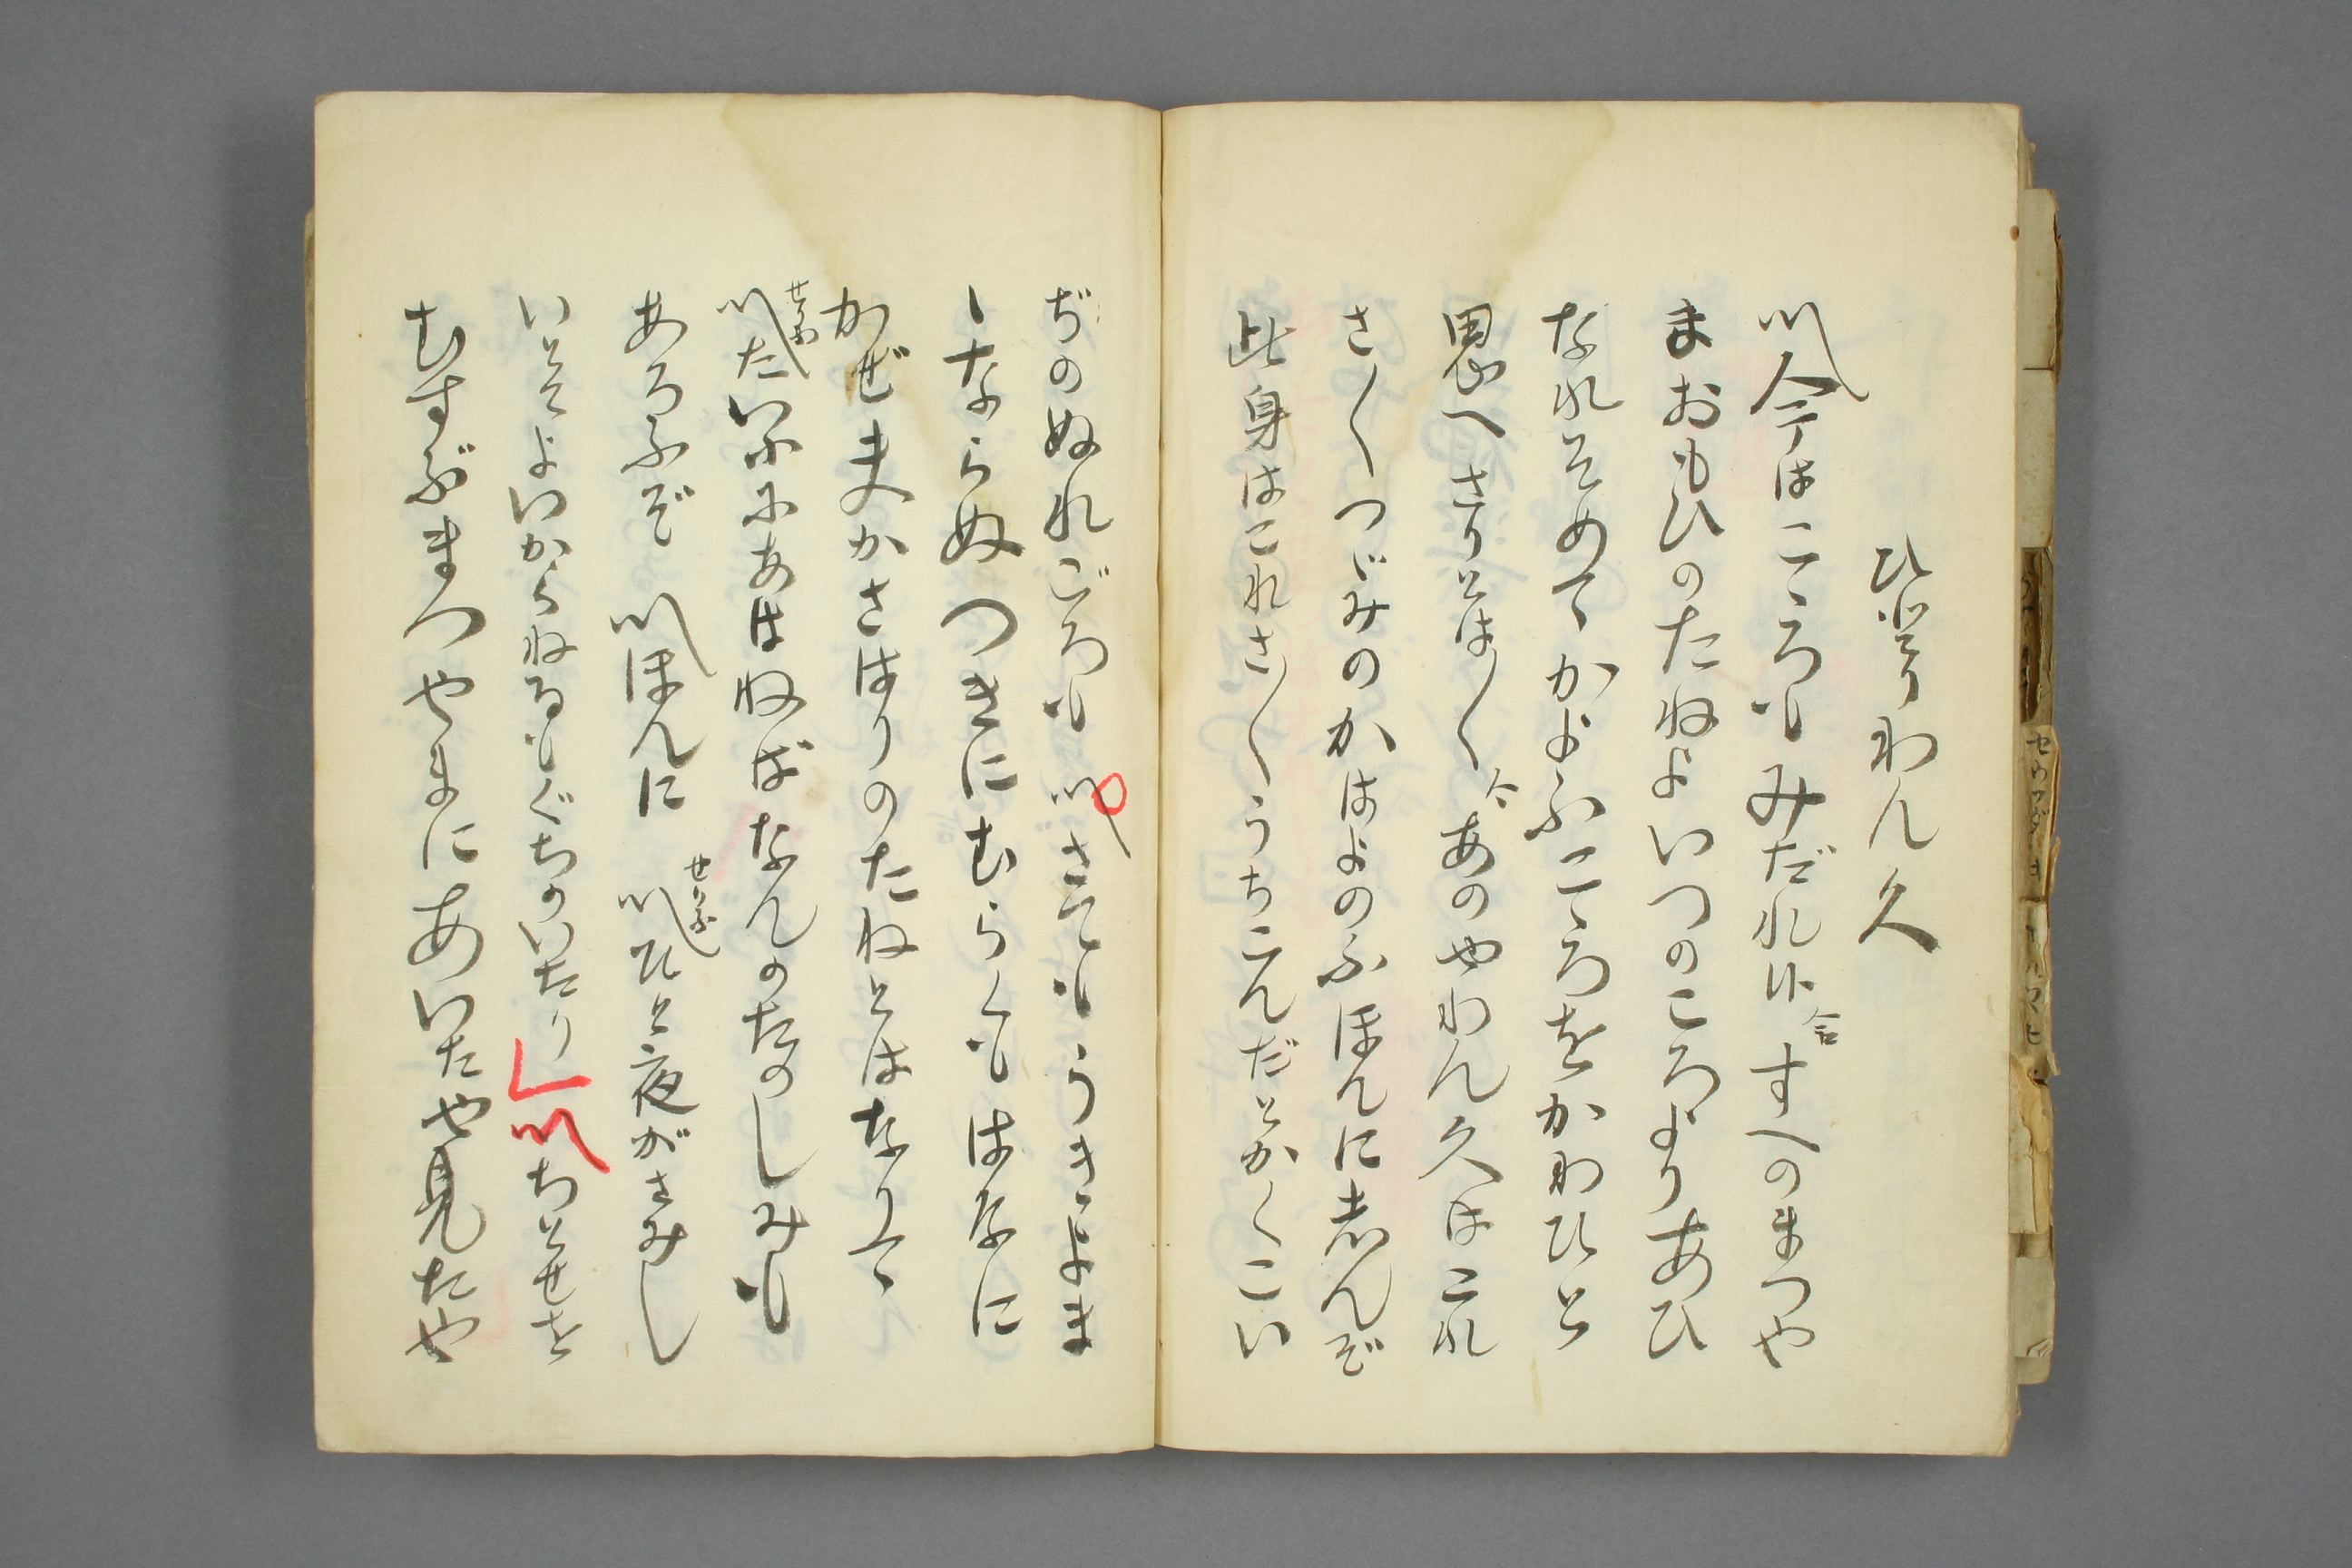 ひとりわん久
〽今はこゝろもみだれ候 合 すへのまつや
まおもひのたねよいつのころよりあひ
なれそめてゝかよふこゝろをかわひと
思へさりとは〱 合 あのやわん久はこれ
さ〱つゞみのかはよのふほんに志んぞ
此身はこれさ〱うちこんだとかくこい
ぢのぬれごろも 〽さてもうきよま
ゝならぬつきにむらくもはなに
かぜ夫かさはりのたねとはなりてゝ
せりふ〽たいふにあはねばなんのたのしみも
あろふぞ 〽ほんに せりふ〽ひと夜がさみし
いとてよいからねるもぐちのいたり 〽ちとせを
むすぶまつやまにあいたや見たや